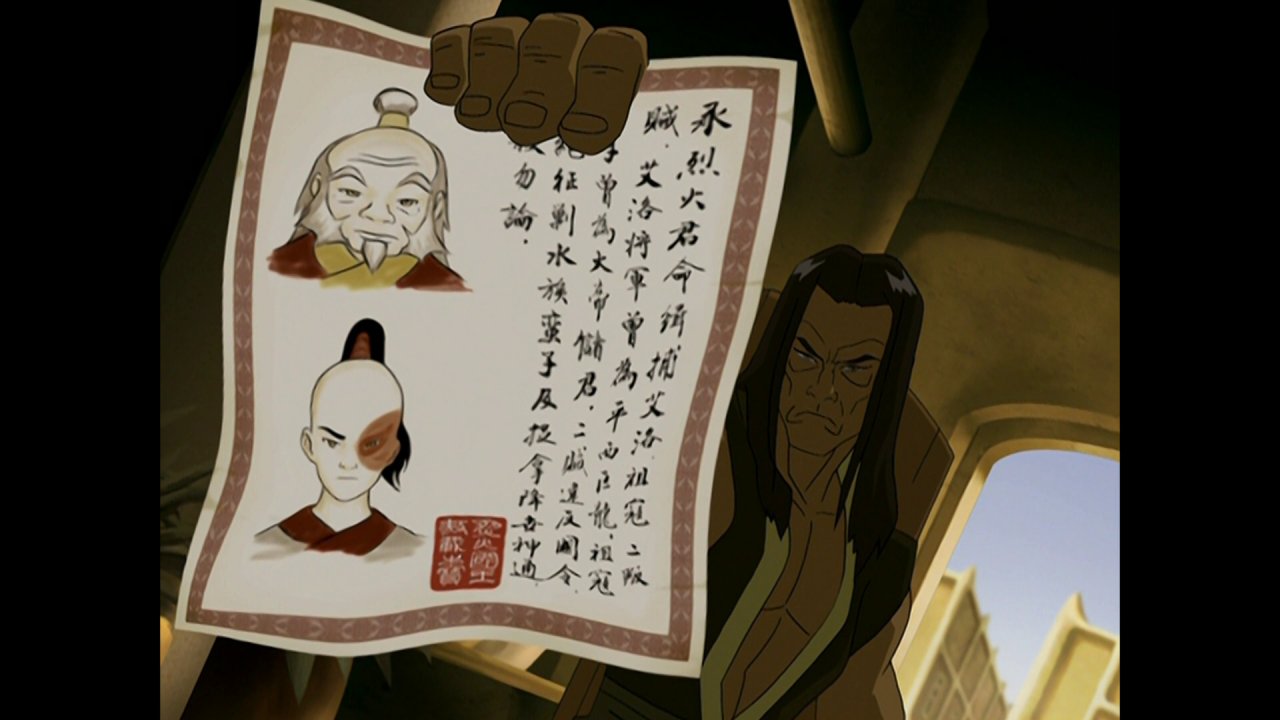 承烈火君命緝捕艾洛.祖寇二叛
賊.艾洛將軍曾為平西巨龍,祖寇
子曾為火帝儲君.二賊違反國令.
絕征剿水族蠻子及捉拿降世神通.
殺勿論.